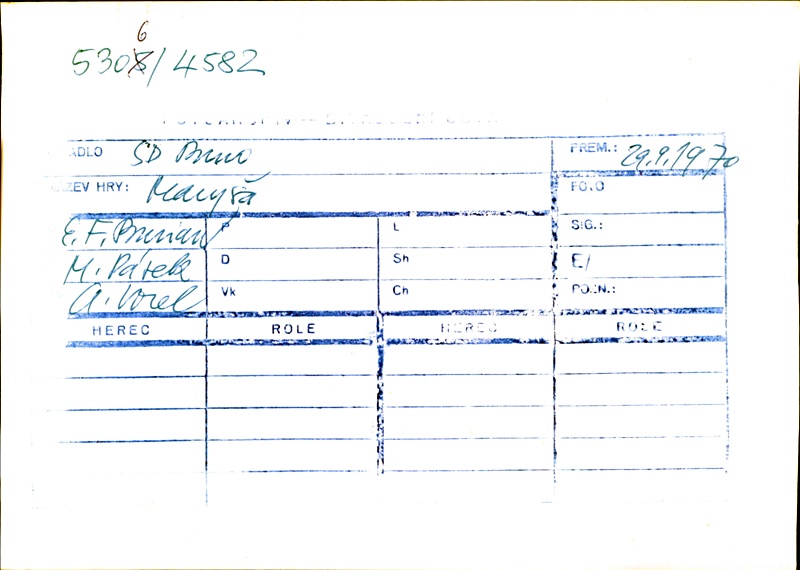 6
5308/4582
ADLO SD Brno PREM.: 29.9.1970
ZEV HRY: Maryša FOTO
E. F. Burian P L SIG.:
M. Pásek D Sh E/
A. Vorel Vk Ch POZN.:
HEREC ROLE HEREC ROLE